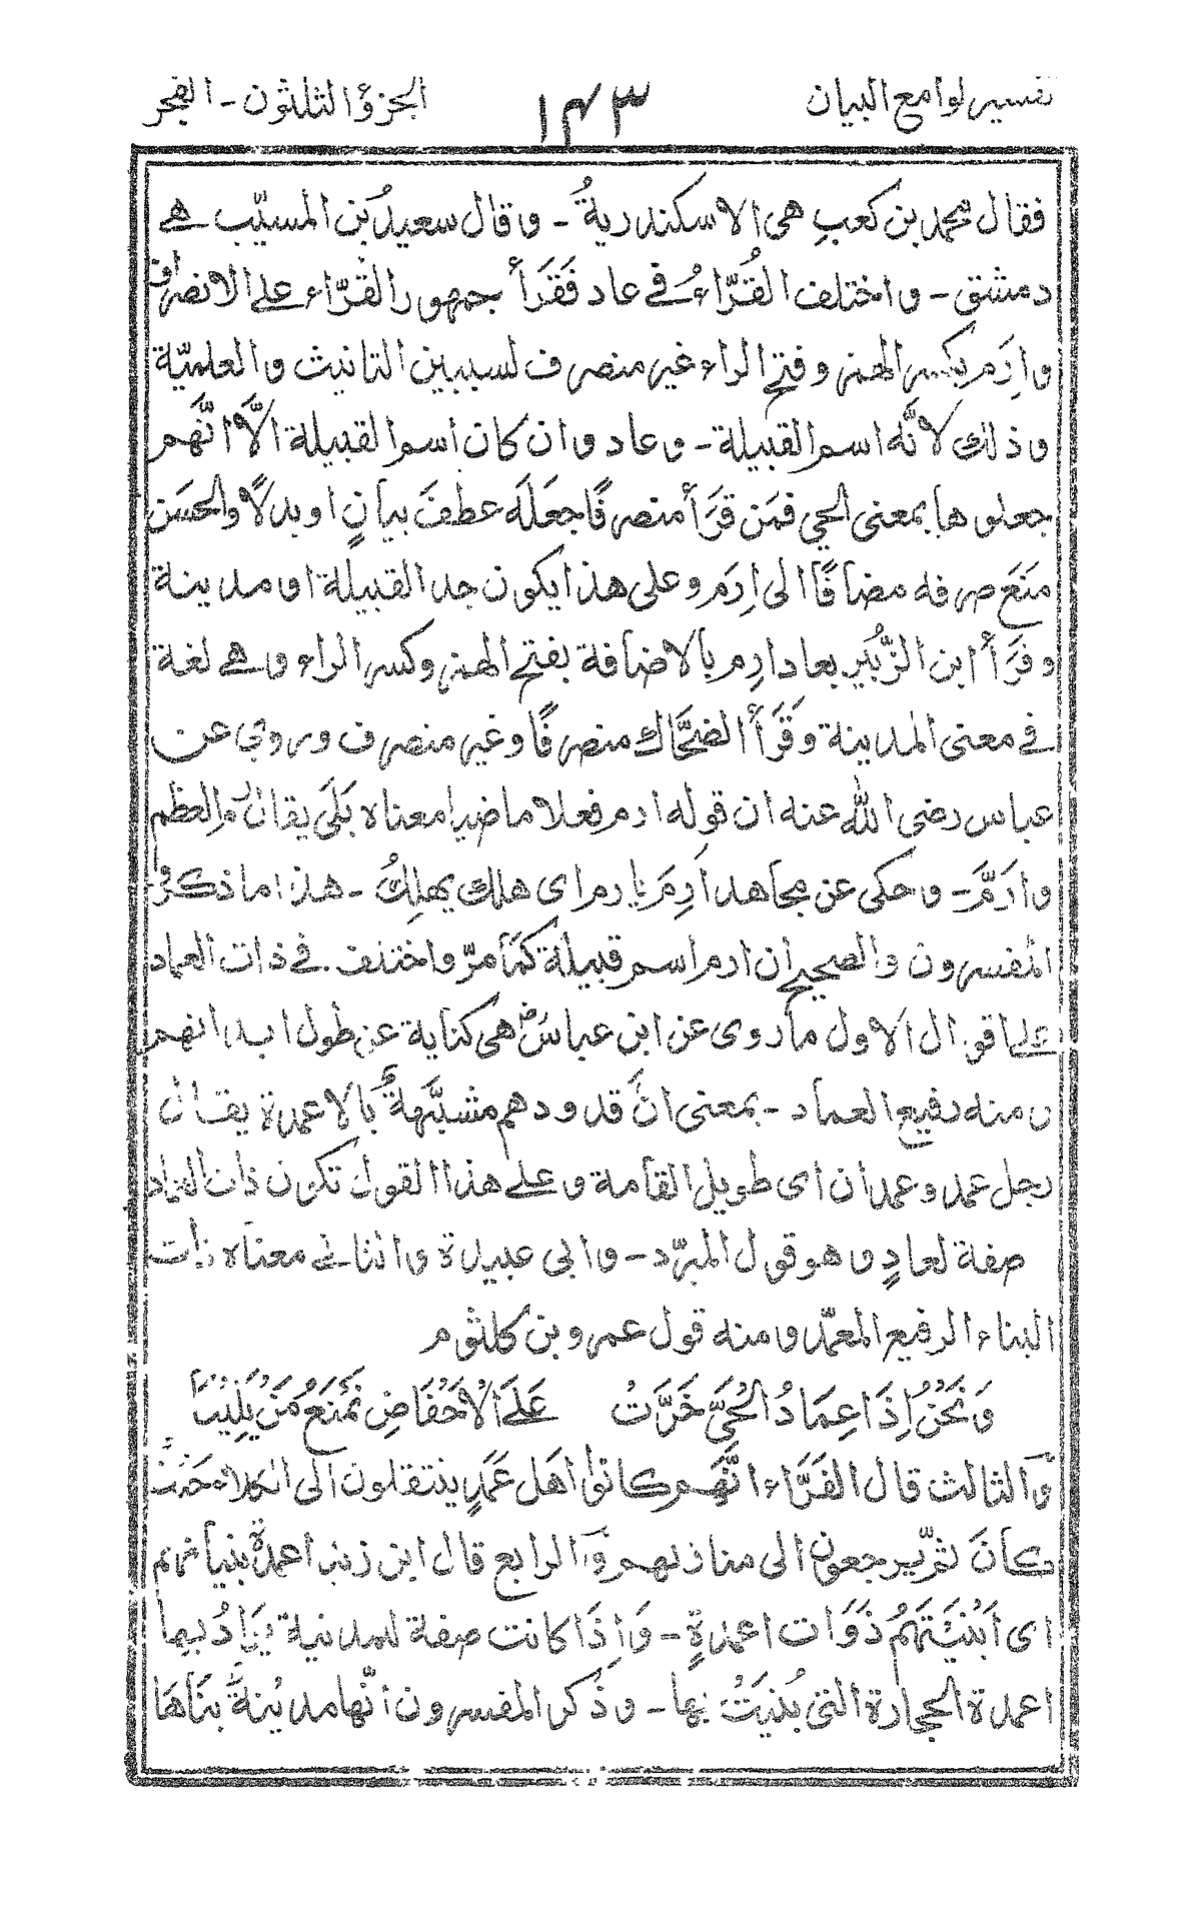 تفسير لوامع البيان ١٤٣ الجزؤ الثلثون - الفجر
فقال محمد بن كعبِ هى الاسكندريةُ - وقال سعيدُ بن المسيّب هے
دمشق - واختلف القُرّاءُ فے عاد فَقَرَأ جمهور القُرّاء علے الانصراف
وإرَم بكسر الهمزه وفتح الراء غير منصرف لسببين التانيث والعلميّة
وذلك لانَّه اسم القبيلة - وعاد وان كان اسم القبيلة الَّا انَّهم
جعلوها بمعنى الحي فمَن قَرَأ منصرفًا جعَلَه عطفَ بيانٍ او بدلًا والحسَن
منَعَ صرفه مضافًا الى اِرَم وعلى هذا يكون جد القبيلة او مدينة
وقَرَأ ابن الزُّبَير بعاد ارِم بالاضافة بفتح الهمزه وكسر الراء وهے لغة
فے معنى المدينة وقَرَأ الضحَّاك منصرفًا وغير منصرف وروي عن
عباس رضى الله عنه ان قوله ارم فعلا ماضيا معناه بَلَى يقال رم العظم
وارَمَّ - وحكى عن مجاهد اَرِمَ يارم اى هلك يهلِكُ - هذا ما ذكره
المفسرون والصحيح ان ارم اسم قبيلة كما مرّ واختلف فے ذات العماد
علے اقوال الاول ما روى عن ابن عباسؓ هى كناية عن طول ابدانهم
ومنه رفيع العماد - بمعنى انَّ قدودهم مشبَّهةٌ بالاعمدة يقال
رجل عمد وعمدان اى طويل القامة وعلے هذا القول تكون ذات العماد
صفة لعادٍ وهو قول المبرّد - وابى عبيدة والثانے معناه ذات
البناء الرفيع المعمّد ومنه قول عمرو بن كلثوم
وَنَحْنُ اِذَا عِمَادُ الْحَىِّ خَرَّتْ عَلَے الْاَحْفَاضِ نَمْنَعُ مَنْ يَلِيْنَا
والثالث قال الفَرَّاء انَّهم كانوا اهل عَمَدٍ ينتقلون الى الكلاء حيث
كانَ ثمّ يرجعون الى منازلهم والرابع قال ابن زيد اعمدة بنيانهم
اى اَبْنِيَتَهُمْ ذَوَات اعمدةٍ - وَاِذَا كانت صفة للمدينة يُرَادُ بها
اعمدة الحجارة التى بُنِيَتْ بها - وذكر المفسرون انّها مدينة بنَاهَا